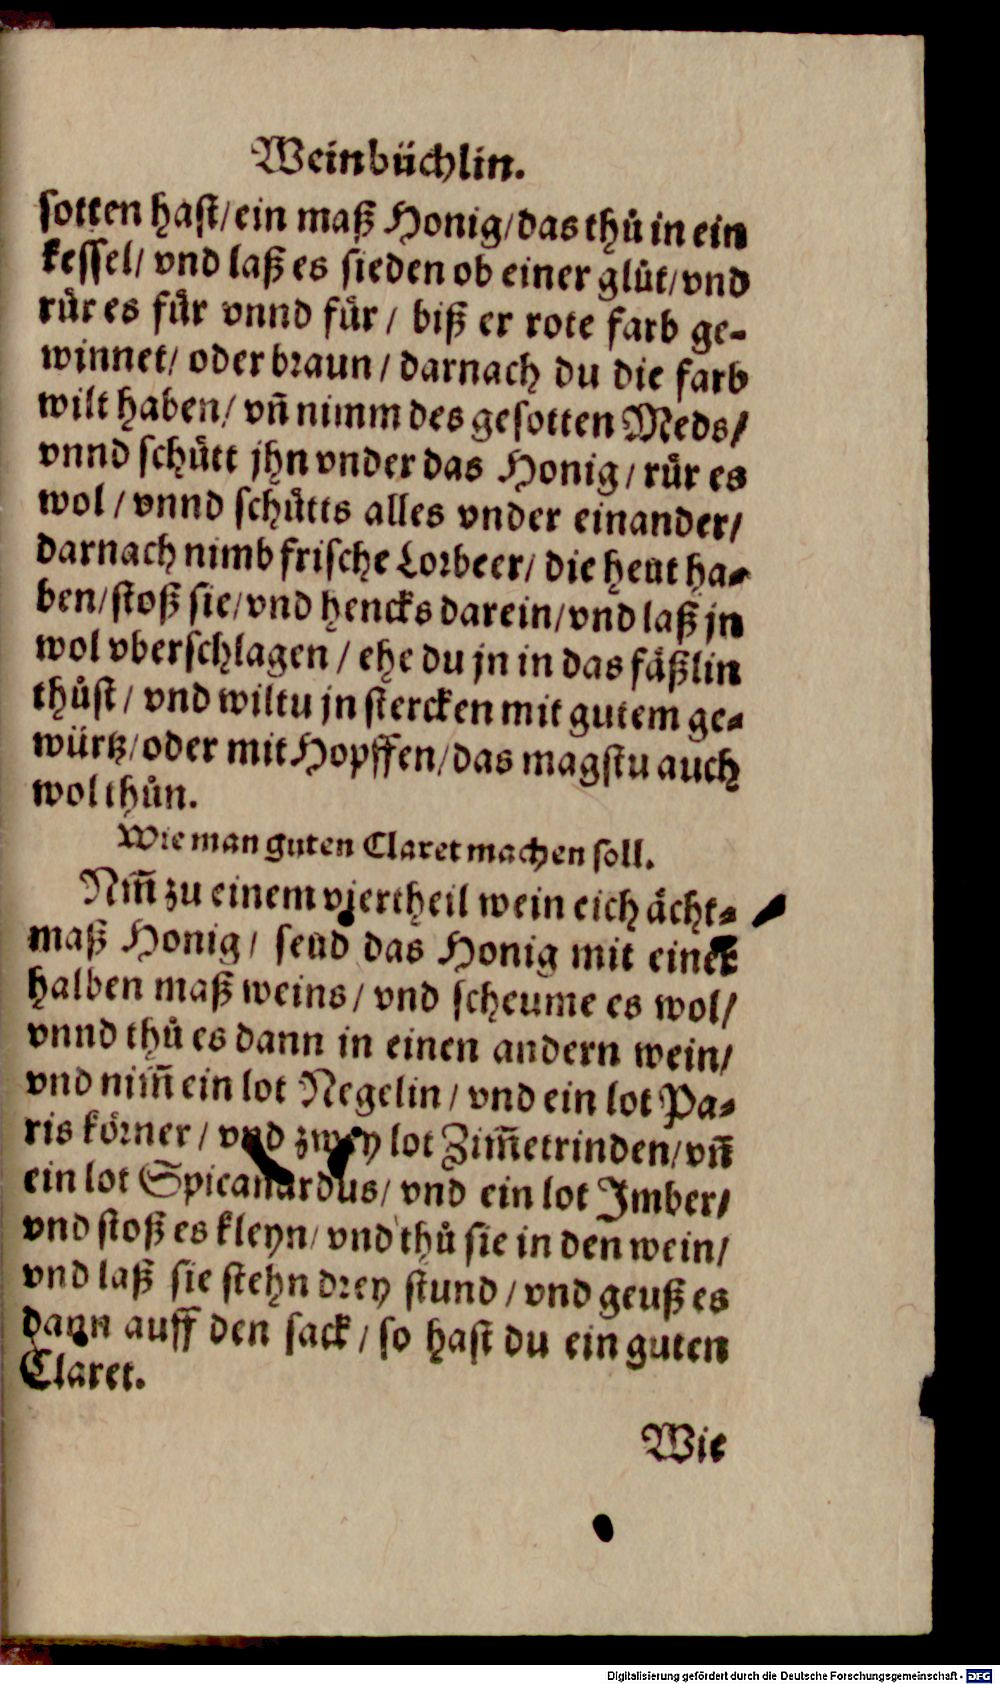 Weinbüchlin.
sotten hast/ein maß Honig/das thů in ein
kessel/ vnd laß es sieden ob einer glůt/vnd
růr es fůr vnnd fůr / biß er rote farb ge-
winnet/ oder braun / darnach du die farb
wilt haben/ vñ nimm des gesotten Meds/
vnnd schůtt jhn vnder das Honig / růr es
wol / vnnd schůtts alles vnder einander/
darnach nimb frische Lorbeer/ die heut ha-
ben/stoß sie/vnd hencks darein/vnd laß jn
wol vberschlagen / ehe du jn in das fäßlin
thůst / vnd wiltu jn stercken mit gutem ge-
würtz/oder mit Hopffen/das magstu auch
wol thůn.
Wie man guten Claret machen soll.
Nim̃ zu einem viertheil wein eich ächt-
maß Honig / seud das Honig mit einer
halben maß weins / vnd scheume es wol/
vnnd thů es dann in einen andern wein/
vnd nim̃ ein lot Negelin / vnd ein lot Pa-
ris körner / vnd zwey lot Zim̃etrinden/vñ
ein lot Spicanardus/ vnd ein lot Jmber/
vnd stoß es kleyn/ vnd thů sie in den wein/
vnd laß sie stehn drey stund / vnd geuß es
dann auff den sack / so hast du ein guten
Claret.
Wie
Digitalisierung gefördert durch die Deutsche Forschungsgemeinschaft - DFG